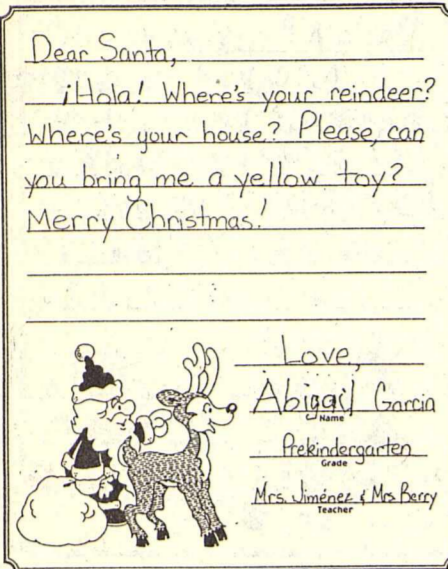 Dear Santa,
¡Hola! Where's your reindeer?
Where's your house? Please, can
you bring me a yellow toy?
Merry Christmas!
Love,
Abigail Garcia
Name
Prekindergarten
Grade
Mrs. Jiménez & Mrs. Berry
Teacher